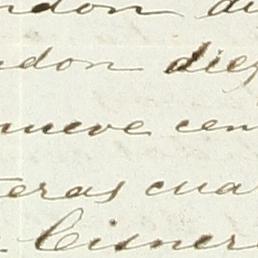 ndon di
ndon diez
nueve cen
teras cua
Cisner